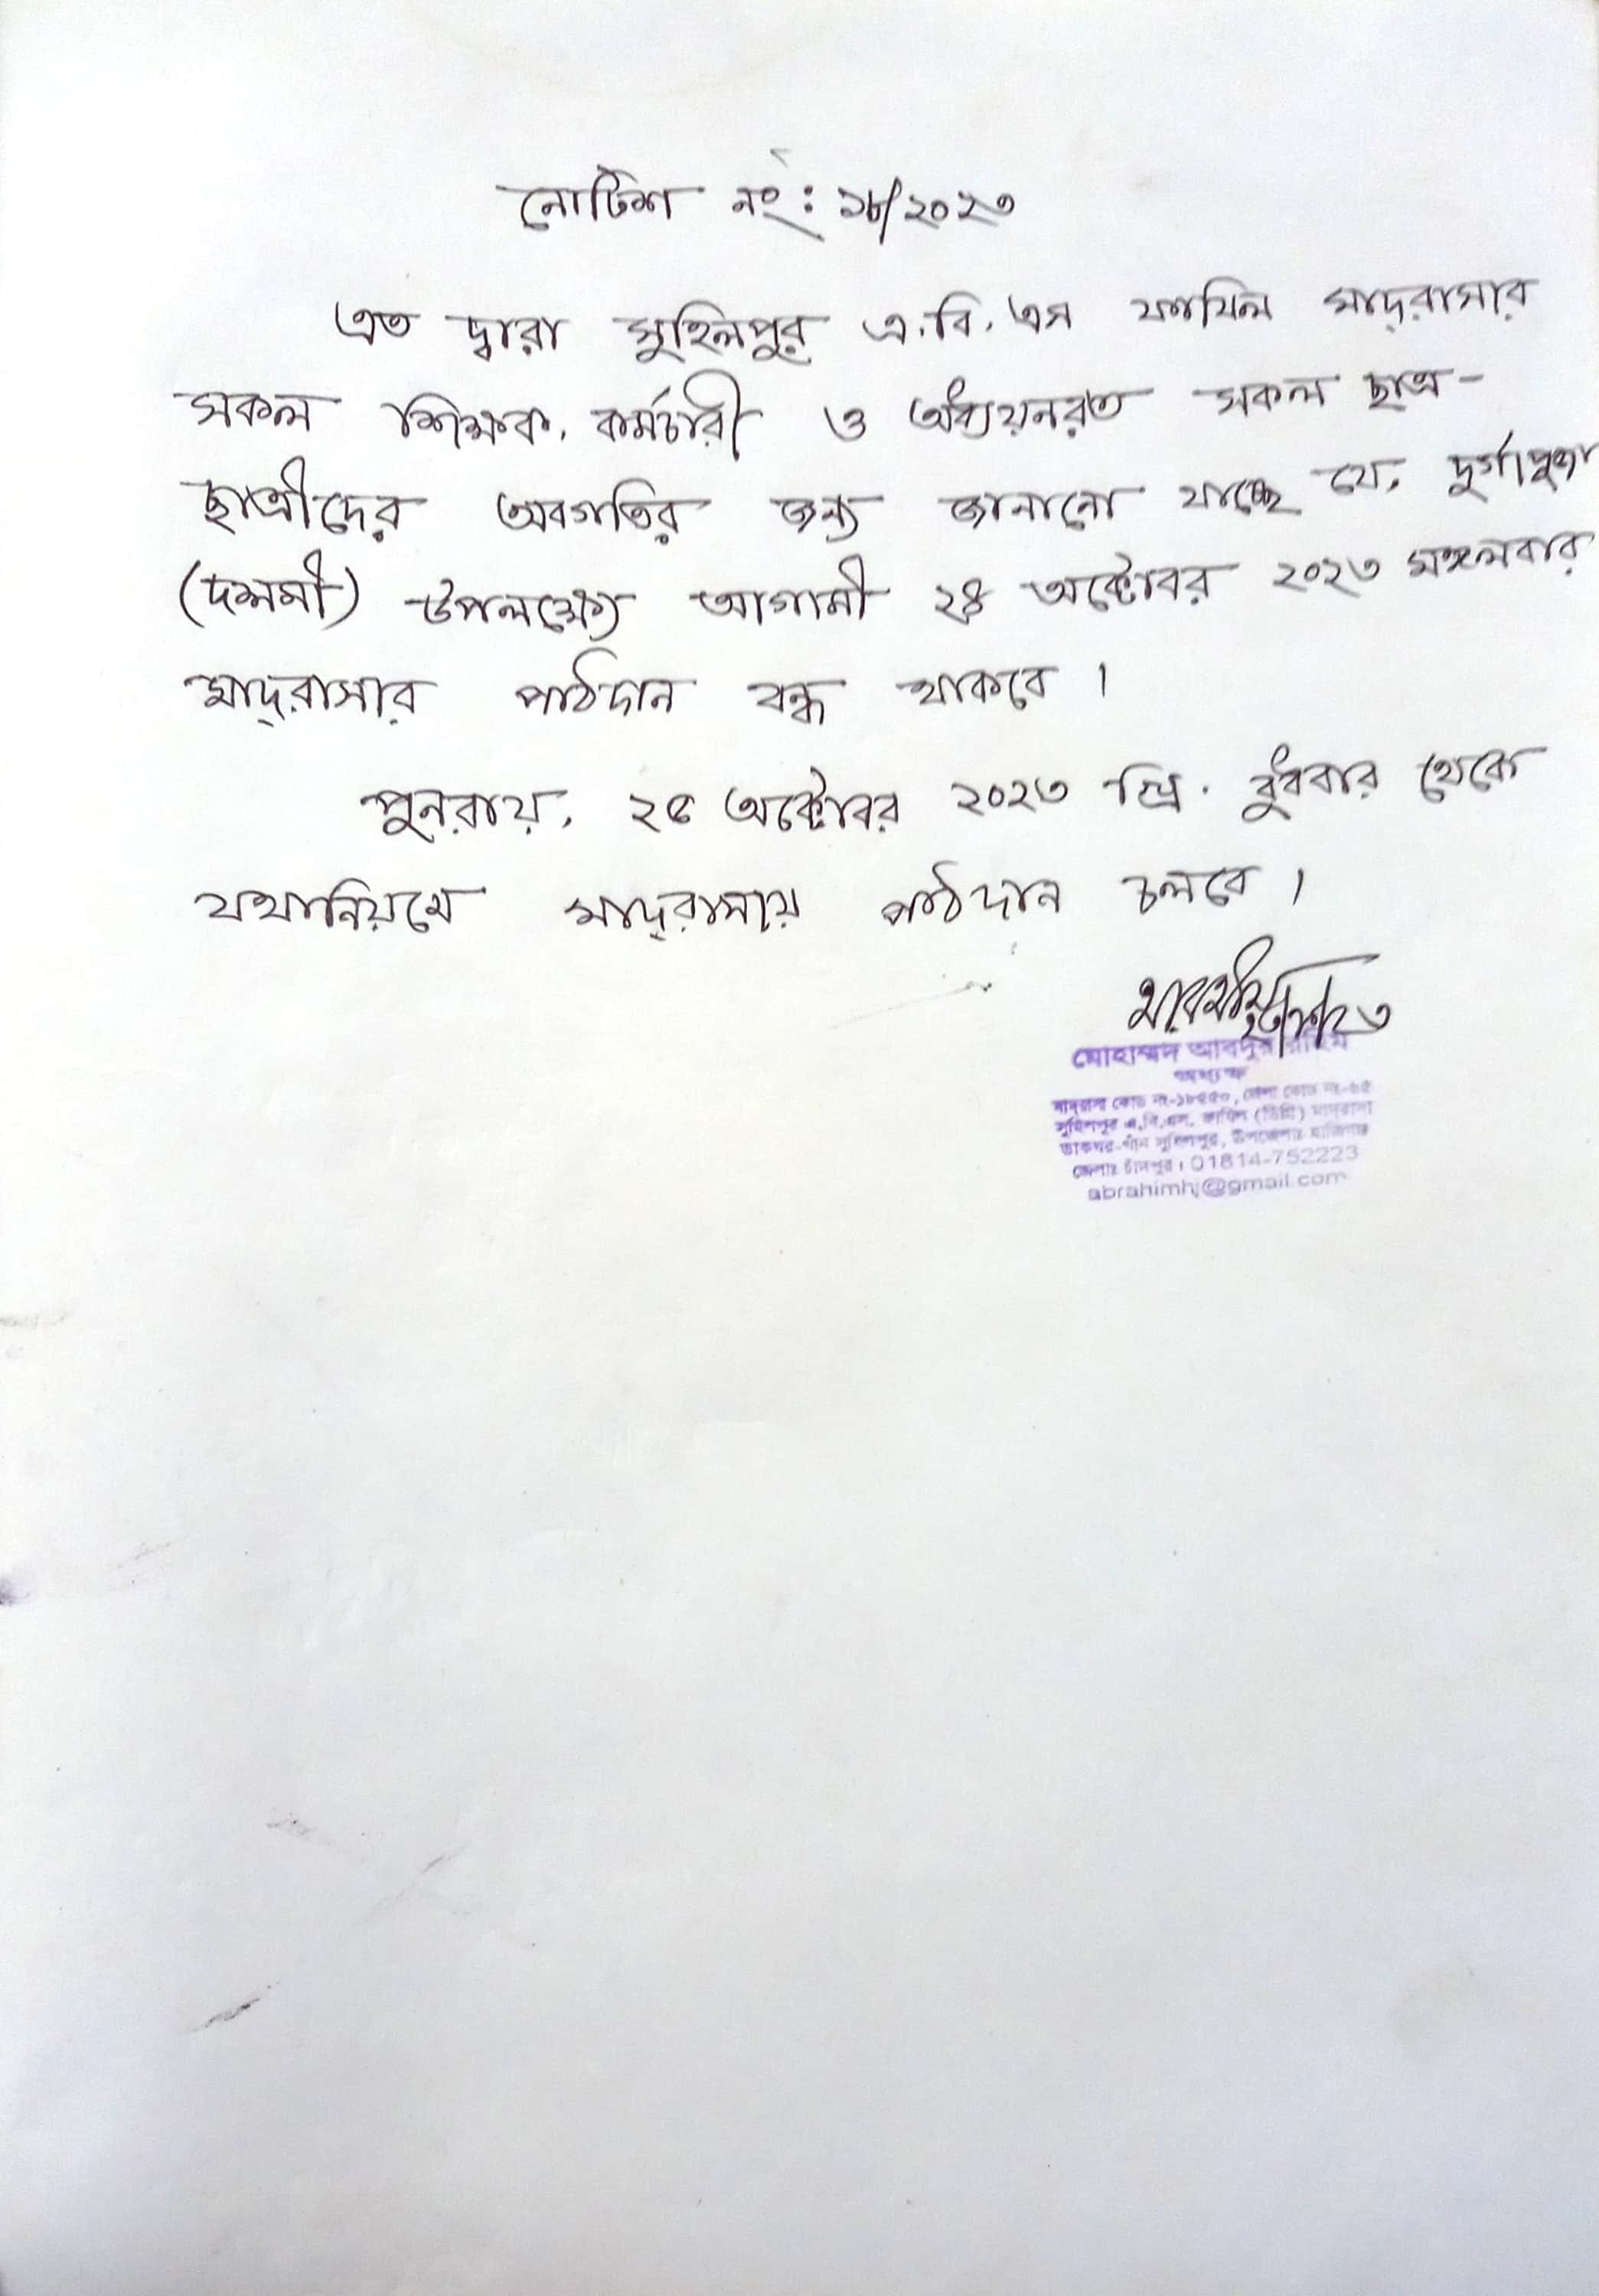 নোটিশ নং: ১৮/২০২৩
এত দ্বারা সুহিলপুর এ.বি.এস ফাযিল মাদ্‌রাসার
সকল শিক্ষক, কর্মচারী ও অধ্যয়নরত সকল ছাত্র-
ছাত্রীদের অবগতির জন্য জানানো যাচ্ছে যে, দুর্গাপুজা
(দশমী) উপলক্ষ্যে আগামী ২৪ অক্টোবর ২০২৩ মঙ্গলবার
মাদ্‌রাসার পাঠদান বন্ধ থাকবে।
পুনরায়, ২৫ অক্টোবর ২০২৩ খ্রি. বুধবার থেকে
যথানিয়মে মাদ্‌রাসায় পাঠদান চলবে।
মোহাম্মদ আবদুর রাহিম
অধ্যক্ষ
মাদ্‌রাসা কোড নং-১৮৫৫০, জেলা কোড নং-৬৫
সুহিলপুর এ.বি.এস. ফাযিল (ডিগ্রি) মাদ্‌রাসা
ডাকঘর-পাঁন সুহিলপুর, উপজেলাঃ হাজিগঞ্জ
জেলাঃ চাঁদপুর। 01814-752223
abrahimhj@gmail.com